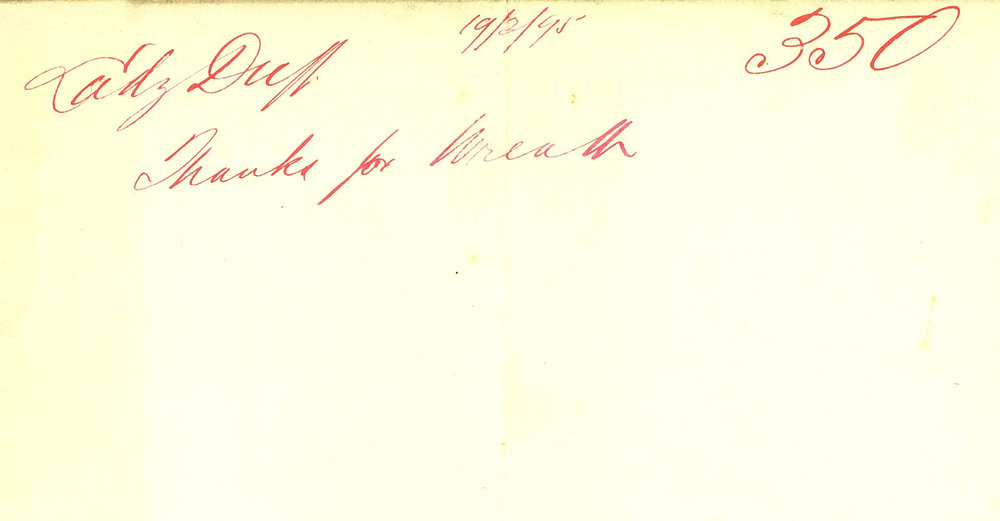 19/2/95
350
Lady Duff.
Thanks for Wreath